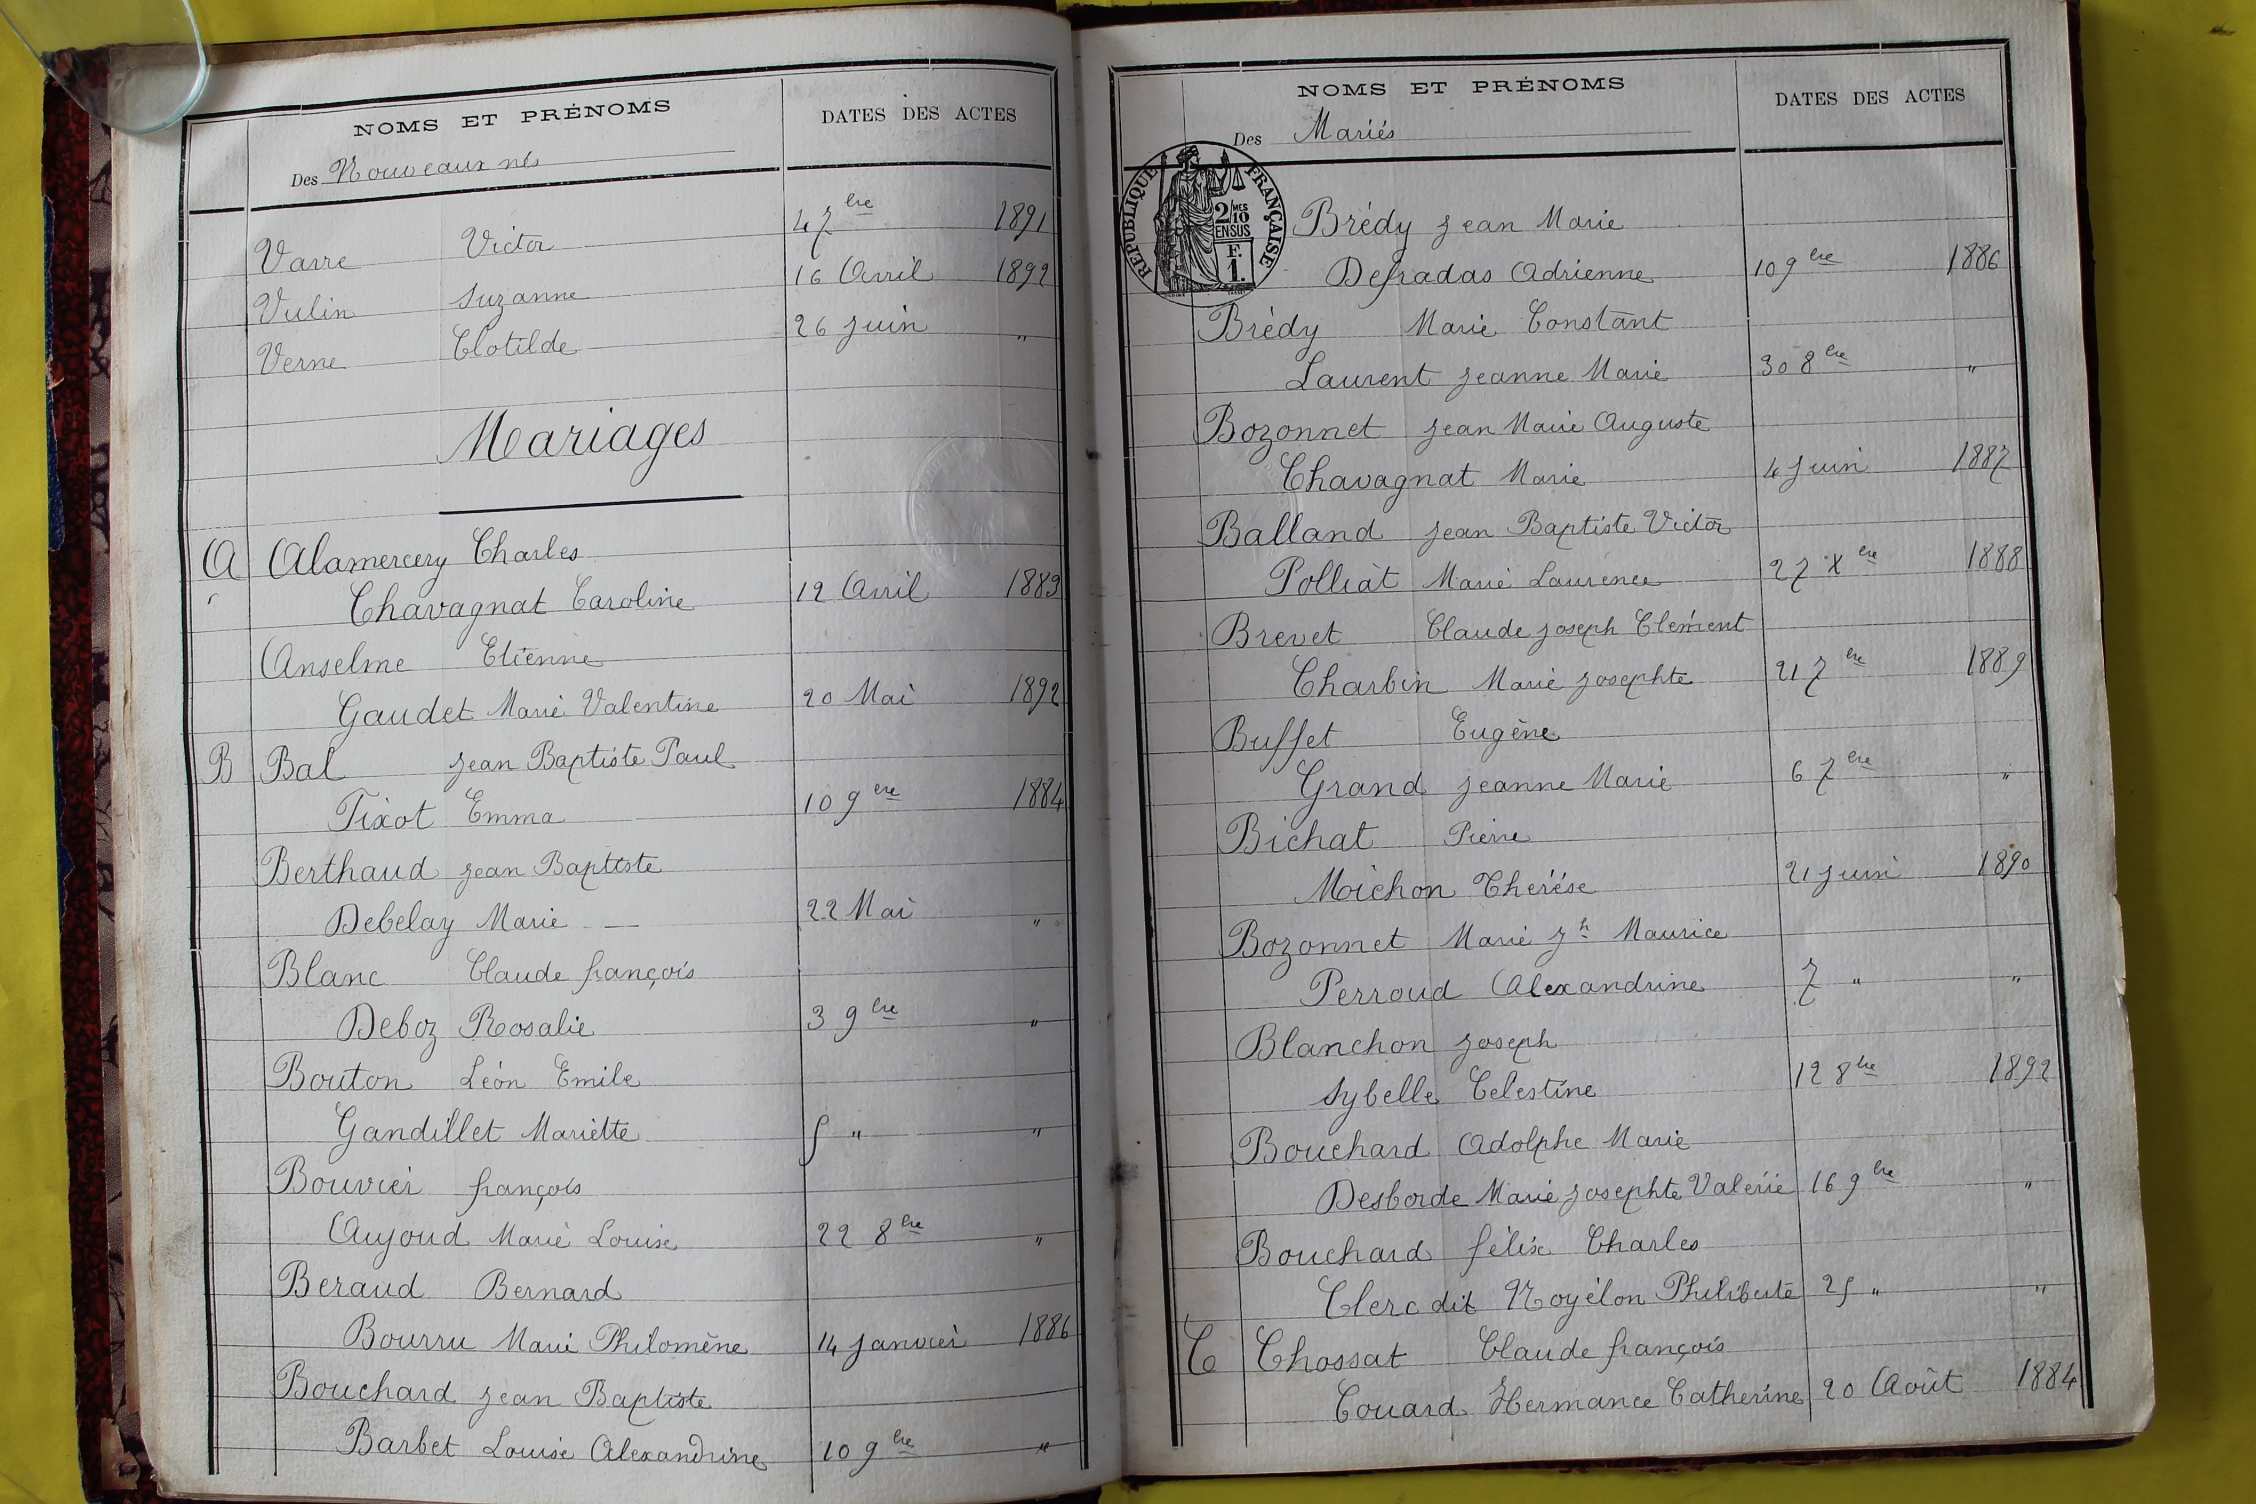 NOMS ET PRÉNOMS
DATES DES ACTES
Des Nouveaux nés
Varre Victor 4 7bre 1891
Vulin Suzanne 16 Avril 1892
Verne Clotilde 26 Juin "
Mariages
A Alamercery Charles
Chavagnat Caroline 12 Avril 1889
Anselme Etienne
Gaudet Marie Valentine 20 Mai 1892
B Bal Jean Baptiste Paul
Tixot Emma 10 9bre 1884
Berthaud Jean Baptiste
Debelay Marie 22 Mai "
Blanc Claude françois
Deboz Rosalie 3 9bre "
Bouton Léon Emile
Gandillet Mariette 5 " "
Bouvier françois
Aujoud Marie Louise 22 8bre "
Beraud Bernard
Bourru Marie Philomène 14 Janvier 1886
Bouchard Jean Baptiste
Barbet Louise Alexandrine 10 9bre "
NOMS ET PRÉNOMS
DATES DES ACTES
Des Mariés
RÉPUBLIQUE FRANÇAISE
2/10 MES
EN SUS
F.
1.
Brédy Jean Marie
Defradas Adrienne 10 9bre 1886
Brédy Marie Constant
Laurent Jeanne Marie 30 8bre "
Bozonnet Jean Marie Auguste
Chavagnat Marie 4 Juin 1887
Balland Jean Baptiste Victor
Polliat Marie Laurence 27 Xbre 1888
Brevet Claude Joseph Clément
Charbin Marie Josephte 21 7bre 1889
Buffet Eugène
Grand Jeanne Marie 6 7bre "
Bichat Pierre
Moichon Thérèse 21 Juin 1890
Bozonnet Marie Jh Maurice
Perroud Alexandrine 7 " "
Blanchon Joseph
Sybelle Celestine 12 8bre 1892
Bouchard Adolphe Marie
Desborde Marie Josephte Valérie 16 9bre "
Bouchard félix Charles
Clerc dit Noyélon Philiberte 25 " "
C Chossat Claude françois
Couard Hermance Catherine 20 Août 1884